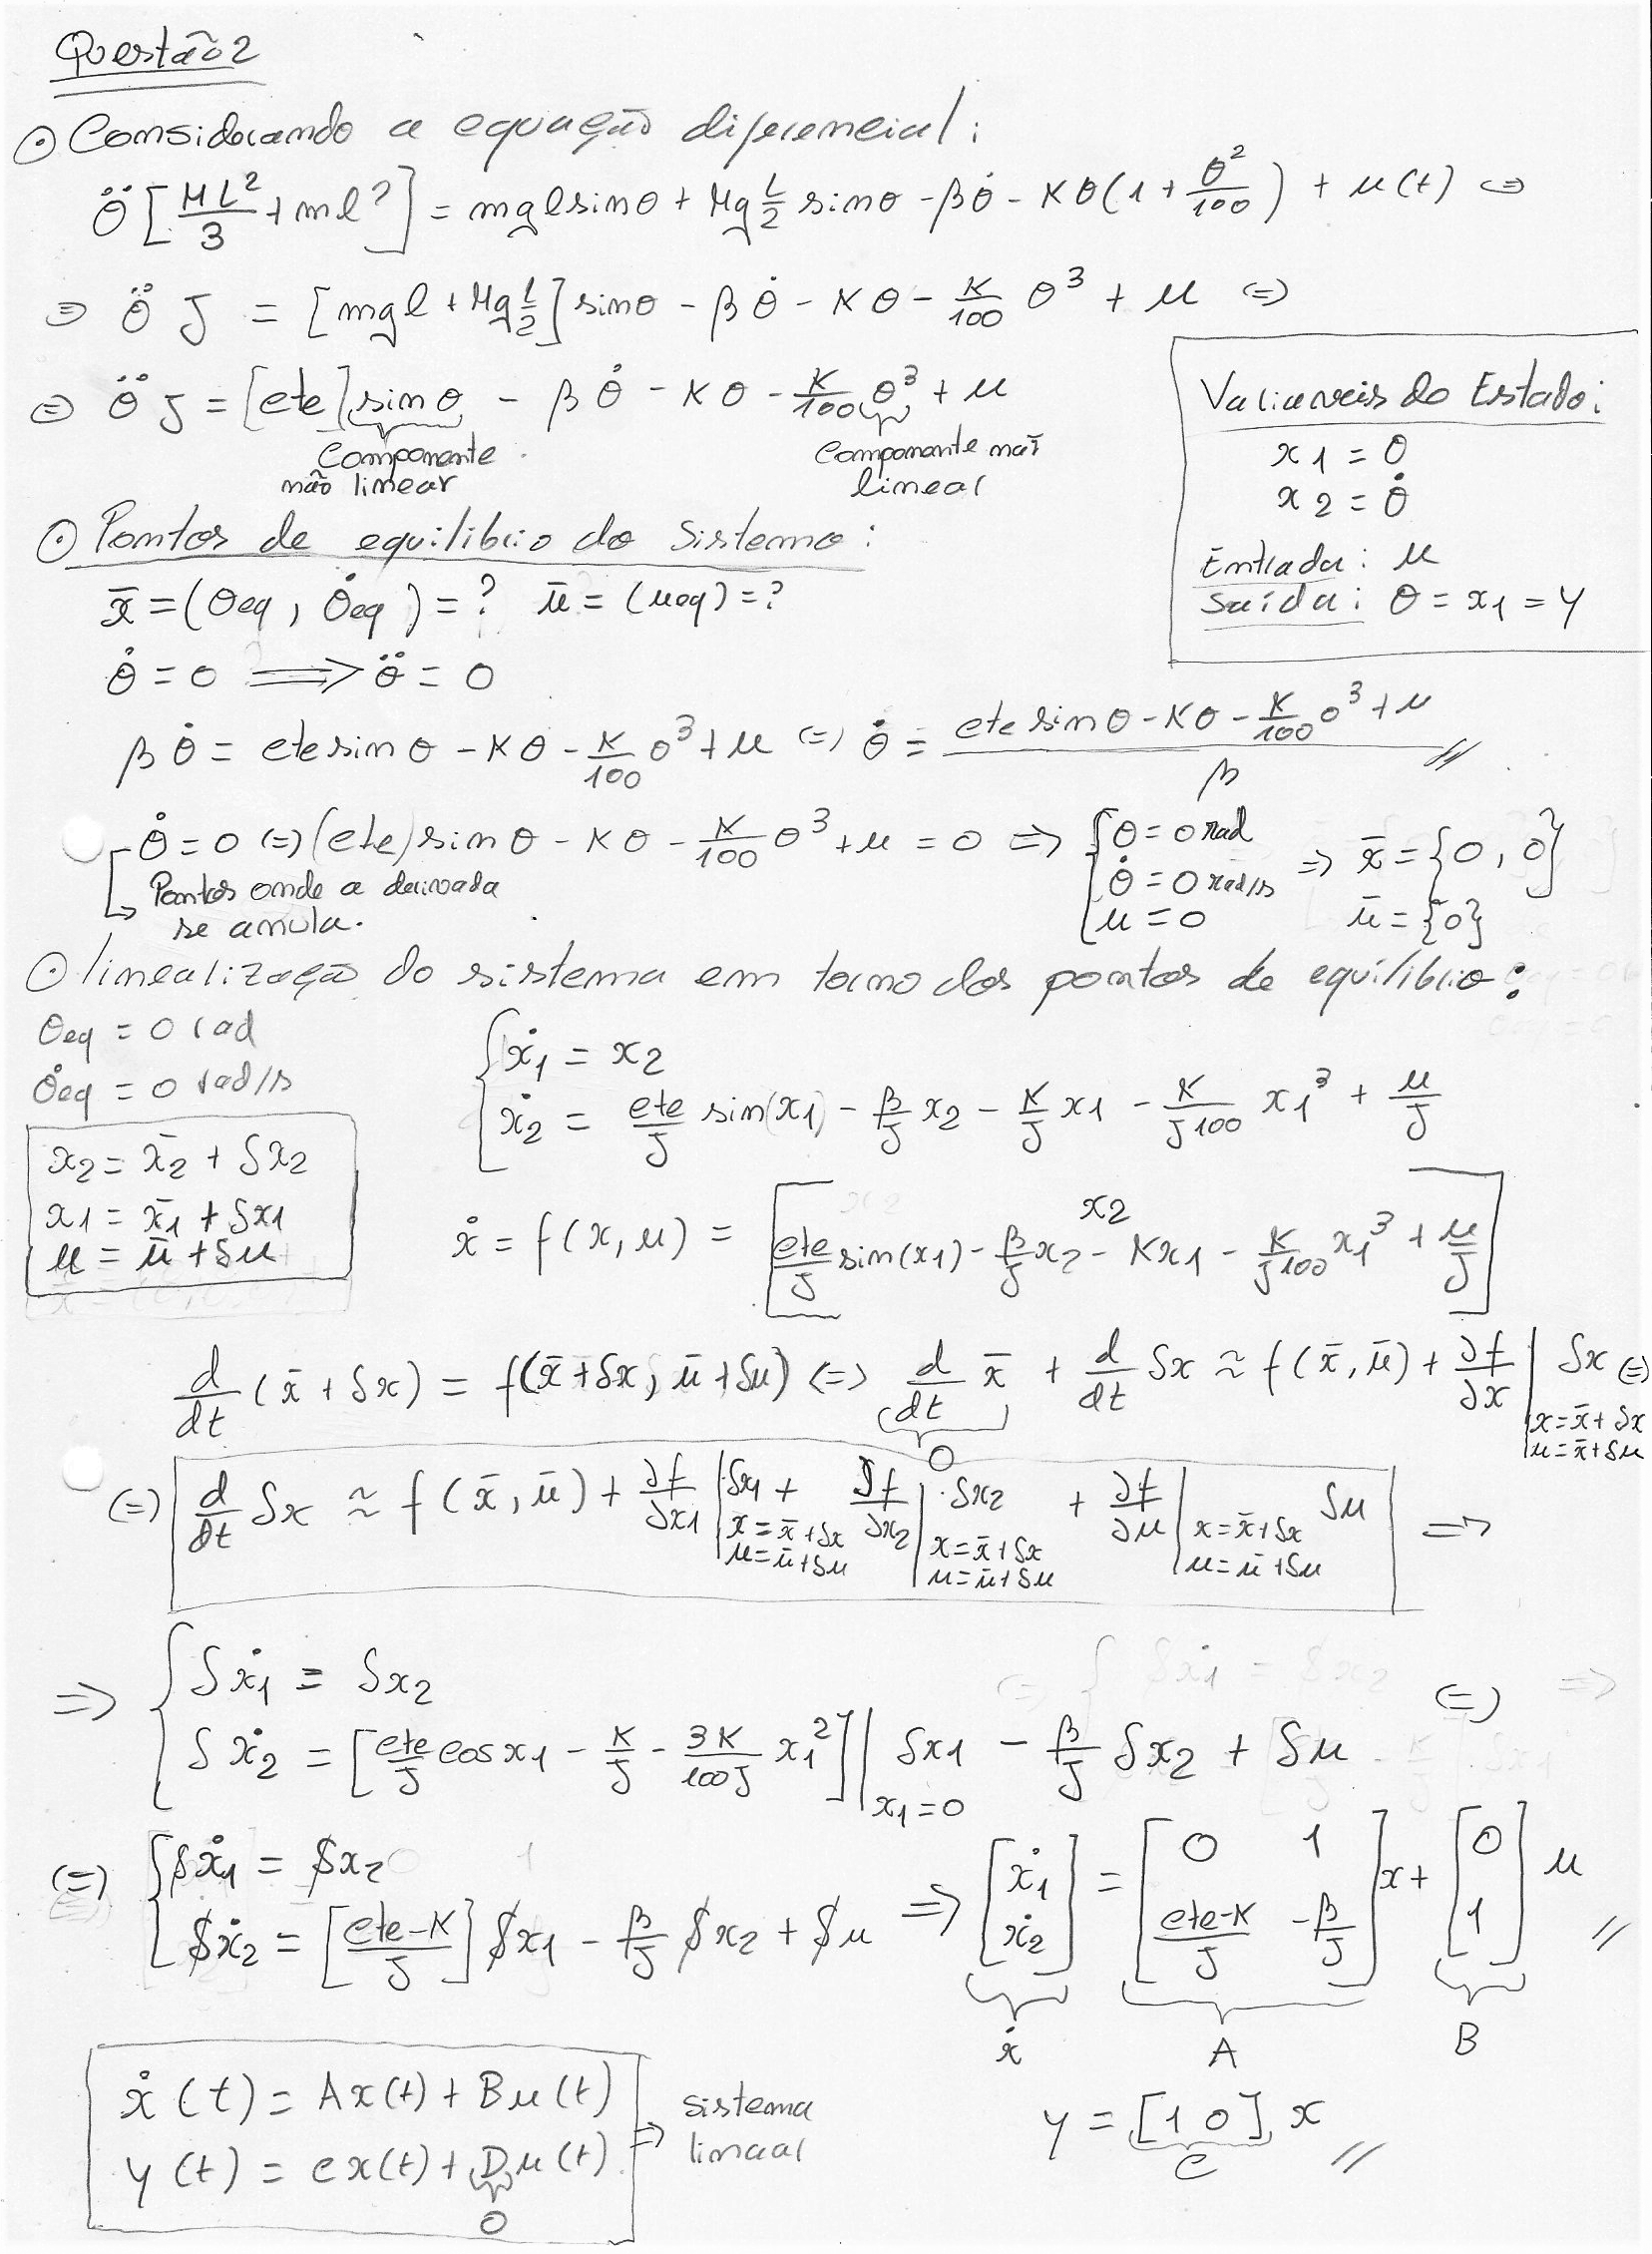 Questão 2
⊙ Considerando a equação diferencial:
θ̈ [ML²/3 + ml²] = mgl sinθ + Mg L/2 sinθ - βθ̇ - Kθ(1 + θ²/100) + u(t) ⇔
⇒ θ̈ J = [mgl + Mg L/2] sinθ - βθ̇ - Kθ - K/100 θ³ + u ⇔
⇔ θ̈ J = [cte] sinθ - βθ̇ - Kθ - K/100 θ³ + u
Componente não linear
componente não linear
Variaveis do Estado:
x1 = θ
x2 = θ̇
Entrada: u
Saída: θ = x1 = y
⊙ Pontos de equilibrio do Sistema:
x̄ = (θeq, θ̇eq) = ? ū = (ueq) = ?
θ̇ = 0 ⟹ θ̈ = 0
βθ̇ = cte sinθ - Kθ - K/100 θ³ + u ⇔ θ̇ = (cte sinθ - Kθ - K/100 θ³ + u)/β //
θ̇ = 0 ⇔ (cte) sinθ - Kθ - K/100 θ³ + u = 0 ⇒ { θ = 0 rad
θ̇ = 0 rad/s
u = 0
⇒ x̄ = {0, 0}
ū = {0}
↳ Pontos onde a derivada
se anula.
⊙ linearização do sistema em torno dos pontos de equilíbrio:
θeq = 0 rad
θ̇eq = 0 rad/s
x2 = x̄2 + δx2
x1 = x̄1 + δx1
u = ū + δu
{ ẋ1 = x2
ẋ2 = cte/J sin(x1) - β/J x2 - K/J x1 - K/J100 x1³ + u/J
ẋ = f(x, u) = [ x2
cte/J sin(x1) - β/J x2 - Kx1 - K/J100 x1³ + u/J ]
d/dt (x̄ + δx) = f(x̄ + δx; ū + δu) ⇔ d/dt x̄ + d/dt δx ≈ f(x̄, ū) + ∂f/∂x | x = x̄ + δx u = x̄ + δu δx ⇔
0
⇔ d/dt δx ≈ f(x̄, ū) + ∂f/∂x1 | x = x̄ + δx u = ū + δu δx1 + ∂f/∂x2 | x = x̄ + δx u = ū + δu · δx2 + ∂f/∂u | x = x̄ + δx u = ū + δu δu ⇒
⇒ { δẋ1 = δx2
δẋ2 = [cte/J cos x1 - K/J - 3K/100J x1²] | x1 = 0 δx1 - β/J δx2 + δu ⇔
⇔ { δẋ1 = δx2
δẋ2 = [(cte-K)/J] δx1 - β/J δx2 + δu
⇒ [ẋ1 ẋ2] = [0 1 (cte-K)/J -β/J] x + [0 1] u //
ẋ A B
ẋ(t) = Ax(t) + Bu(t)
y(t) = Cx(t) + Du(t)
0
⇒ sistema
linear
y = [1 0] x //
C